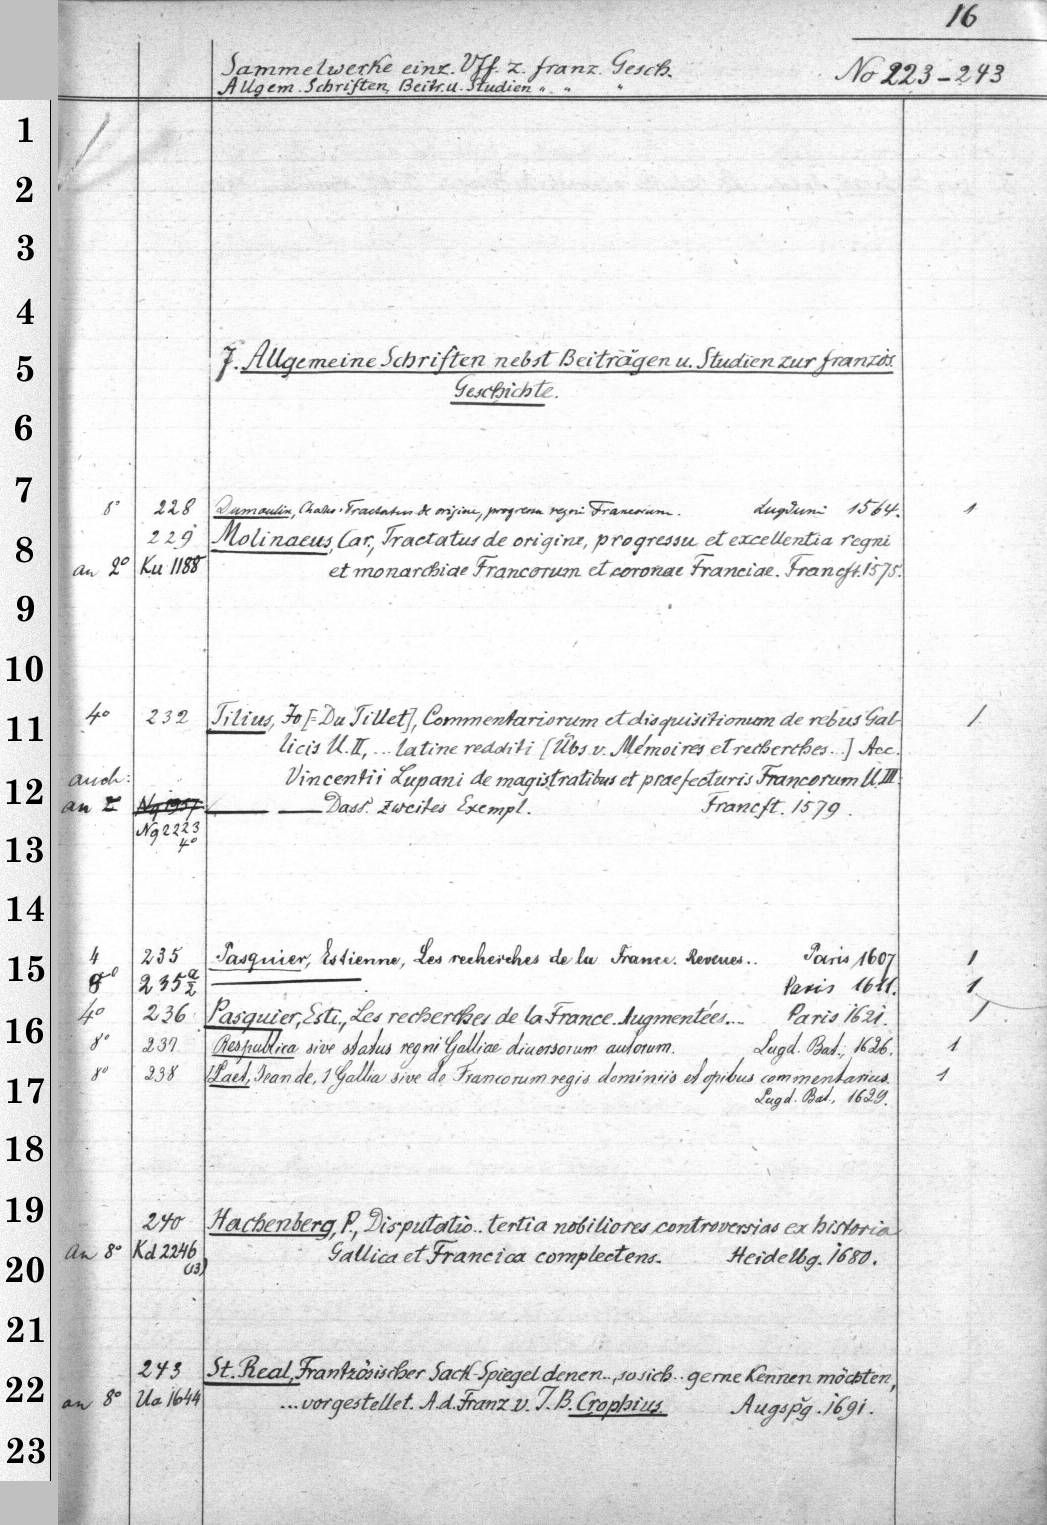 16
Sammelwerke einz. Vff. z. franz. Gesch. No 223-243
Allgem. Schriften, Beitr. u. Studien " " "
1
2
3
4
7. Allgemeine Schriften nebst Beiträgen u. Studien zur französ.
5
Geschichte.
6
7
8° 228 Dumoulin, Charles. Tractatus de origine, progressu regni Francorum. Lugduni 1564. 1
229 Molinaeus, Car., Tractatus de origine, progressu et excellentia regni
8
an 2° Ku 1188 et monarchiae Francorum et coronae Franciae. Francft. 1575.
9
10
4° 232 Tilius, Jo [= Du Tillet], Commentariorum et disquisitionum de rebus Gal- 1
11
licis ll. II, ... latine redditi [Übs v. Mémoires et recherches...] Acc.
auch: Vincentii Lupani de magistratibus et praefecturis Francorum ll. III.
12
an 2 Nq 1957 — — Dass. zweites Exempl. Francft. 1579.
Nq 2223
4°
13
14
4 235 Pasquier, Estienne, Les recherches de la France. Revenes.. Paris 1607 1
15
8° 235 a/2 — Paris 1611. 1
4° 236 Pasquier, Esti., Les recherches de la France. Augmentées... Paris 1621. 1
16
8° 237 Respublica sive status regni Galliae diversorum autorum. Lugd. Bat., 1626. 1
8° 238 [Laet, Jean de,] Gallia sive de Francorum regis dominiis et opibus commentarius. 1
17
Lugd. Bat., 1629.
18
19
240 Hachenberg, P., Disputatio.. tertia nobiliores controversias ex historia
An 8° Kd 2246 Gallica et Francica complectens. Heidelbg. 1680.
(13)
20
21
243 St. Real, Frantzösischer Sack-Spiegel denen.., so sich.. gerne kennen möchten,
22
an 8° Ua 1644 ...vorgestellet. A. d. Franz. v. J. B. Crophius. Augspg. 1691.
23